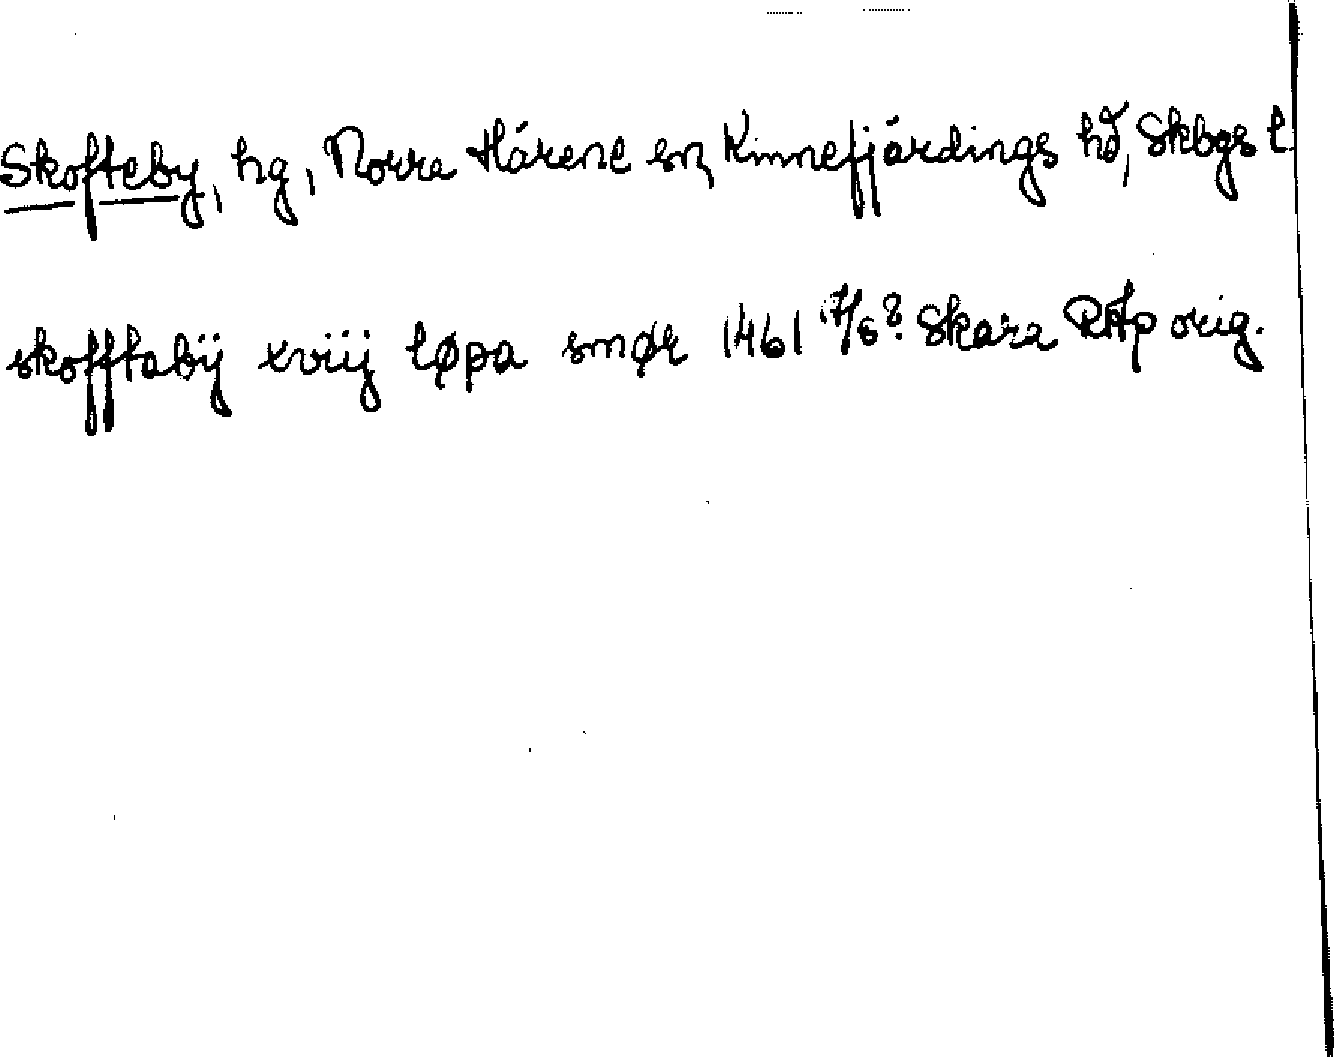 Skofteby, hg, Norra Härene sn, Kinnefjärdings hd, Skbgs l
skofftabÿ xviij løpa smør 1461 7/8? Skara RAp orig.